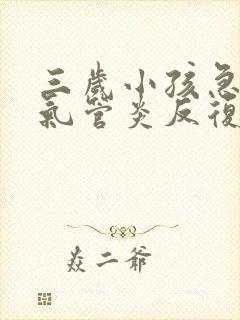 三歲小孩急
氣管炎反復
焱二爺